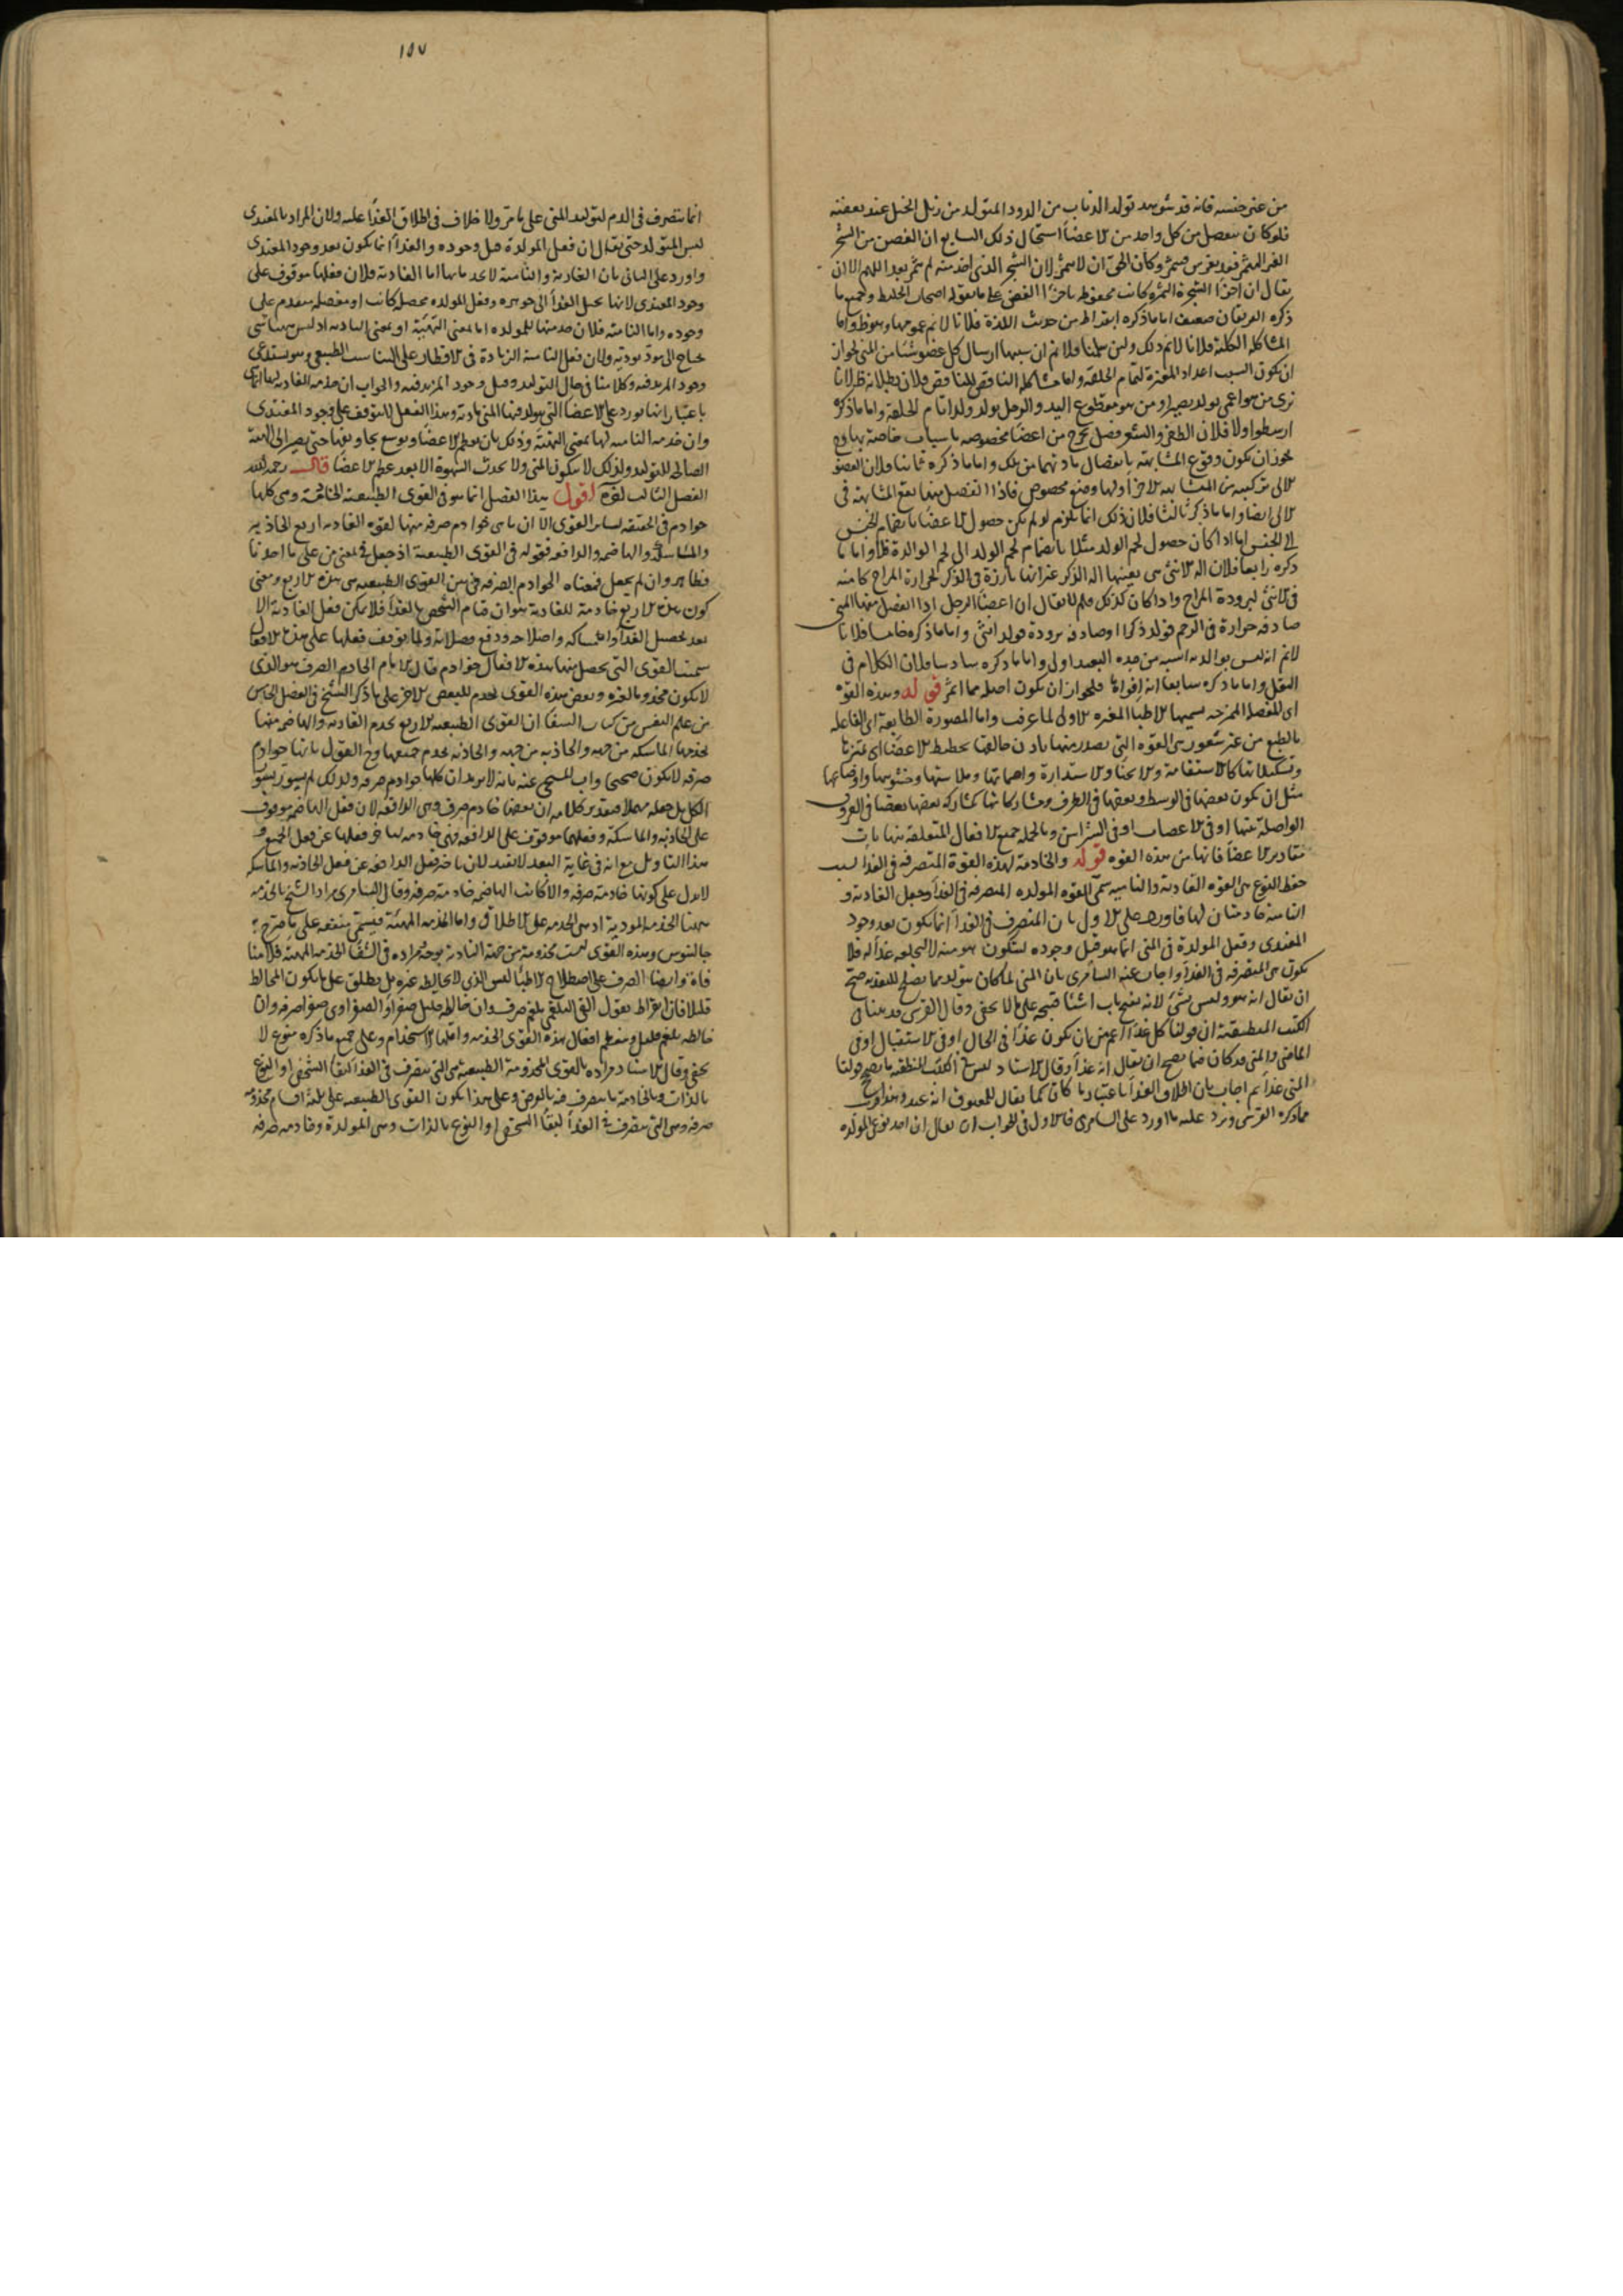 ١٥٧
من غير جنسه فانه قد شوهد تولد الذباب من الدود المتولد من زبل الخيل عند تعفنه
فلو كان ينفصل من كل واحد من الاعضاء استحال ذلك السابع ان الغصن من الشجر
الغير المثمر قد يغرس فيثمر وكان الحق ان لا يثمر لان الشجر الذي اخذ منه لم يثمر بعد اللهم الا ان
يقال ان اجزاء الشجرة الثمرة كانت مخلوطه باجزاء الغصن على ما يقوله اصحاب الخليط وجميع ما
ذكره الفريقان ضعيف اما ما ذكره ابقراط من حديث اللذة فلانا لا نم عمومها وهو ظ واما
المشاكلة الكلية فلانا لا نم ذلك ولئن سلمنا فلا نم ان سببها ارسال كل عضو شيئا من المني لجواز
ان يكون السبب اعداد المغيرة لتمام الخلقة واما مشاكلة الناقص للناقص فلان بطلانه ظ لانا
نرى من هو اعمى يولد بصيرا ومن هو مقطوع اليد والرجل يولد ولدا تام الخلقة واما ما ذكره
ارسطو اولا فلان الظفر والشعر فضل يخرج من اعضاء مخصوصه باسباب خاصة بها وح
يجوز ان يكون وقوع المشابهة بانفصال مادتهما من تلك واما ما ذكره ثانيا فلان العضو
الالي تركيبه من المتشابهه الاجزاء ولها وضع مخصوص فاذا انفصل منها يقع المشابهة في
الالي ايضا واما ما ذكره ثالثا فلان ذلك انما يلزم لو لم يكن حصول الاعضاء بانضمام الجنس
الى الجنس اما اذا كان حصول لحم الولد مثلا بانضمام لحم الولد الى لحم الوالدة فلا واما ما
ذكره رابعا فلان الة الانثى هي بعينها الة الذكر غير انها بارزة في الذكر لحرارة المزاج كامنه
في الانثى لبرودة المزاج واذا كان كذلك فلم لا يقال ان اعضاء الرجل اذا انفصل منها المني
صادفه حرارة في الرحم فولد ذكرا او صادفه برودة فولد انثى واما ما ذكره خامسا فلانا
لا نم انه ليس بوالد انسبه من جده البعيد اولى واما ما ذكره سادسا فلان الكلام في
النقل واما ما ذكره سابعا فلجواز ان يكون اصله مما اثمر قوله وهذه القوة
اي المفصلة الممزجه يسميها الاطباء المغيره الاولى لما عرفت واما المصورة الطابعة اي الفاعلة
بالطبع من غير شعور هي القوة التي يصدر منها باذن خالقها تخطيط الاعضاء اي تميزها
وتشكيلاتها كالاستقامة والانحناء والاستدارة وملاستها وخشونتها واوضاعها
مثل ان يكون بعضها في الوسط وبعضها في الطرف ومشاركاتها كمشاركه بعضها بعضا في العروق
الواصلة بينها او في الاعصاب او في الشرايين وبالجمله جميع الافعال المتعلقه بنهايات
مقادير الاعضاء فانها من هذه القوه قوله والخادمة لهذه القوة المتصرفه في الغذاء لسبب
حفظ النوع هي القوه الغاذية والناميه سمي القوه المولده المتصرفه في الغذاء وجعل الغاذية و
النامية خادمتان لها فاورد على الاول بان المتصرف في الغذاء انما يكون بعد وجود
المغتذي وفعل المولدة في المني انما هو قبل وجوده ليتكون هو منه لا ليجعله غذاء له فلا
يكون هي المتصرفه في الغذاء واجاب عنه السامري بان المني لما كان متولدا مما يصلح للتغذيه صح
ان يقال انه هو وليس بشيء لانه يفتح باب اشياء قبيحة على ما لا يخفى وقال القرشي قد بينا في
الكتب المنطقية ان قولنا كل غذاء اعم من ان يكون غذاء في الحال او في الاستقبال او في
الماضي والمني قد كان فيما يصح ان يقال انه غذاء وقال الاستاد ليس في الكتب المنطقيه ما يصح قولنا
المني غذاء ثم اجاب بان اطلاق الغذاء باعتبار ما كان كما يقال للمعتوق انه عبد وهذا قريب
مما ذكره القرشي ويرد عليه ما اورد على السامري فالاولى في الجواب ان يقال ان احد نوعي المولده
انما يتصرف في الدم لتوليد المني على ما مر ولا خلاف في اطلاق الغذاء عليه ولان المراد بالمغتذي
ليس المتولد حتى يقال ان فعل المولدة قبل وجوده والغذاء انما يكون بعد وجود المغتذي
واورد على الثاني بان الغاذية والنامية لا يخدمانها اما الغاذية فلان فعلها موقوف على
وجود المغتذي لانها تحيل الغذاء الى جوهره وفعل المولده محصلة كانت او مفصلة متقدم على
وجوده واما النامية فلان خدمتها للمولده اما بمعنى التهيئة او بمعنى التادية اذ ليس هنا شيء
يحتاج الى مؤد يوديه ولان فعل النامية الزيادة في الاقطار على التناسب الطبيعي وهو يستدعي
وجود المزيد فيه وكلامنا في حال التوليد وقبل وجود المزيد فيه والجواب ان خدمة الغاذية لها انما هي
باعتبار انها تورد على الاعضاء التي يتولد فيها المني مادته وهذا الفعل لا يتوقف على وجود المغتذي
وان خدمة النامية لها بمعنى التهيئة وذلك بان يعظم الاعضاء ويوسع مجاريها حتى يصير الى الهيئة
الصالحة للتوليد ولذلك لا يتكون المني ولا يحدث الشهوة الا بعد عظم الاعضاء قال رحمه الله
الفصل الثالث اقول هذا الفصل انما هو في القوى الطبيعية الخادمة وهي كلها
خوادم في الحقيقه لساير القوى الا ان ما هي خوادم صرفه منها لقوه الغاذيه اربع الجاذبه
والماسكة والهاضمه والدافعه فقوله في القوى الطبيعية اذ جعل في بمعنى من على ما احد
فظاهر وان لم يجعل فمعناه الخوادم الصرفه في هي القوى الطبيعيه هي هذه الاربع ومعنى
كون هذه الاربع خادمة للغاذية هو ان قيام الشخص بالغذاء فلا يمكن فعل الغاذية الا
بعد تحصيل الغذاء وامساكه واصلاحه ودفع فضلاته ولما توقف فعلها على هذه الافعال
سميت القوى التي يحصل منها هذه الافعال خوادم قال الامام الخادم الصرف هو الذي
لا يكون مخدوما لغيره وبعض هذه القوى يخدم للبعض الاخر على ما ذكر الشيخ في الفصل الخامس
من علم النفس من كتاب الشفاء ان القوى الطبيعية الاربع تخدم الغاذية والهاضمه منها
تخدمها الماسكه من جهه والجاذبه من جهه والجاذبه تخدم جميعها وح القول بانها خوادم
صرفه لا يكون صحيحا واجاب المسيحي عنه بانه لا يريد ان كلها خوادم صرفه ولذلك لم يسور بسور
الكل بل جعله مهملا فتقدير كلامه ان بعضها خادم صرف وهي الدافعه لان فعل الهاضمه موقوف
على الجاذبه والماسكة وفعلهما موقوف على الدافعه فهي خادمه لها فرفعلها عن فعل الجميع و
هذا التاويل مع انه في غاية البعد لا يفيد لان تاخر فعل الدافعه عن فعل الجاذبه والماسكه
لا يدل على كونها خادمة صرفه والا لكانت الهاضمه خادمة صرفه وقال السامري مراد الشيخ بالخدمه
ههنا الخدمه المودية اذ هي الخدمه على الاطلاق واما الخدمه المهيئة فيسمى منفعه على ما صرح به
جالينوس وهذه القوى ليست مخدومة من جهة التادية بوجه مراده في الشفاء الخدمه المهيئه فلا منافاة
وايضا الصرف على اصطلاح الاطباء ليس الذي لا يخالطه غيره بل يطلق على ما يكون المخالط
قليلا فان ابقراط يقول القيء البلغمي بلغم صرف وان خالطه قليل صفراء والصفراوي صفراء صرفه وان
خالطه بلغم قليل ومعظم افعال هذه القوى الخدمه واقلها الاستخدام وعلى جميع ما ذكره منوع لا
يخفى وقال الاستاد مراده بالقوى المخدومة الطبيعية هي التي تتصرف في الغذاء لبقاء الشخص او النوع
بالذات وبالخادمة ما يتصرف فيه بالعرض وعلى هذا يكون القوى الطبيعيه على ثلثة اقسام مخدومه
صرفه وهي التي تتصرف في الغذاء لبقاء الشخص او النوع بالذات وهي المولدة وخادمه صرفه